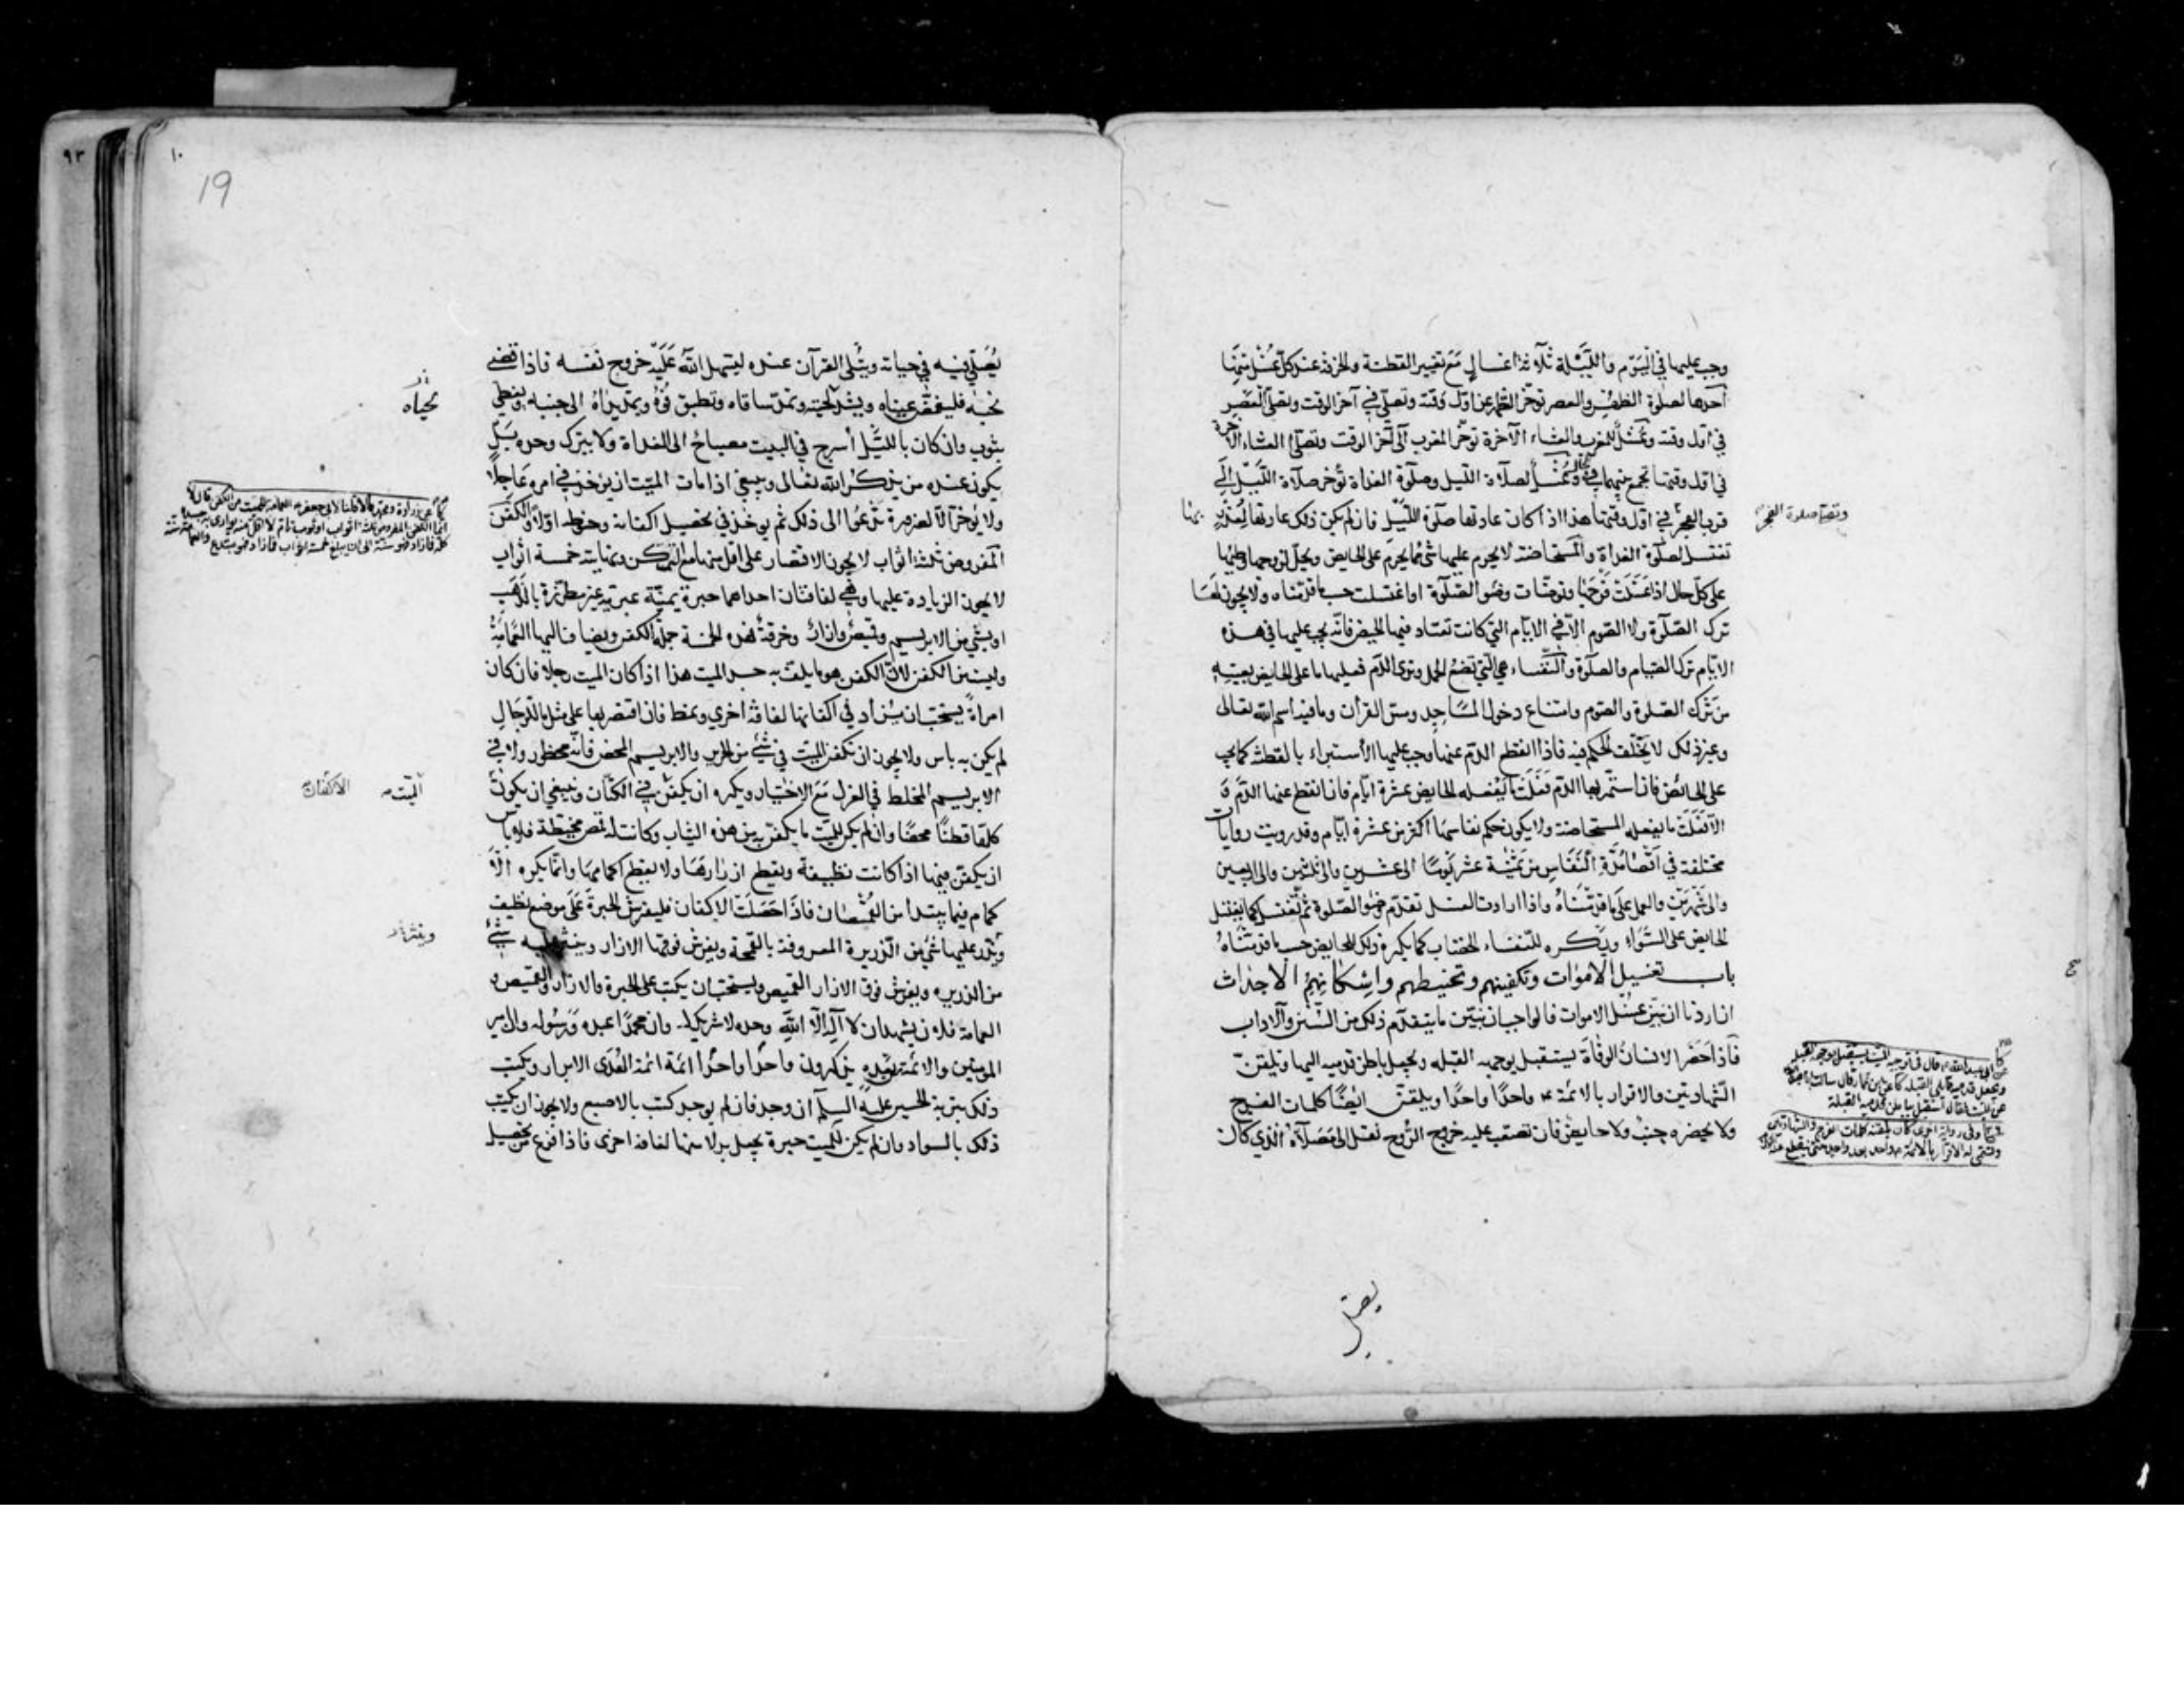 وجب عليها في اليوم والليلة ثلاثة اغسال مع تغيير القطنة والخرقة عند كل غسل تتمّها
أحدها لصلوة الظهر والعصر تؤخّر الظهر عن اوّل وقته وتصلّي في آخر الوقت وتصلّي العصر
في اوّل وقته وغسل للمغرب والعشاء الآخرة تؤخّر المغرب الى آخر الوقت وتصلّي العشاء الآخرة
في اوّل وقتها تجمع بينهما وغسل لصلاة الليل وصلوة الغداة تؤخر صلاة الليل إلى
قرب الفجر في اوّل وقتها هذا اذا كان عادتها صلوة الليل فان لم يكن ذلك عادتها
وتصلّى صلوة الفجر
تغتسل لصلوة الغداة والمستحاضة لا يحرم عليها شئ مما يحرم على الحايض ويحلّ لزوجها وطيها
على كلّ حال اذا غسلت فرجها وتوضّات وضوء الصلوة او اغتسلت حسب ما قدّمناه ولا يجوز لها
ترك الصلوة ولا الصوم الّا في الايّام التي كانت تعتاد فيها الحيض فانّه يجب عليها في هذه
الايّام ترك الصيام والصلوة والنّفساء هي الّتي تضع الحمل وترى الدّم فعليها ما على الحايض بعينه
من ترك الصلوة والصوم وامتناع دخول المساجد ومسّ القرآن وما فيه اسم الله تعالى
وغير ذلك لا يختلف الحكم فيه فاذا انقطع الدم عنها وجب عليها الاستبراء بالقطنة كما يجب
على الحائض فاذا استمّر بها الدّم فعلت ما يفعله الحايض عشرة ايّام فان انقطع عنها الدّم و
الّا فعلت ما يفعله المستحاضة ولا يكون حكم نفاسها اكثر من عشرة ايّام وقد رويت روايات
مختلفة في اقصا مدّة النفاس من ثمنية عشر يومًا الى عشرين والى ثلثين والى اربعين
والى شهرين والعمل على ما قدّمناه واذا ارادت الغسل تقدّم وضوء الصّلوة ثم تغتسل كما يغتسل
الحايض على السّواء ويكره للنفساء الخضاب كما يكره ذلك للحايض حسب ما قدمناه
باب تغسيل الاموات وتكفينهم وتحنيطهم واسكانهم الاجداث
اذا اردنا ان نبيّن غسل الاموات فالواجب ان نبيّن ما يتقدّم ذلك من السّنن والآداب
فاذا حضر الانسان الوفاة يستقبل بوجهه القبلة ويجعل باطن قدميه اليها ويلقّن
الشهادتين والاقرار بالائمّة ع واحدًا واحدًا ويلقّن ايضًا كلمات الفرج
ولا يحضره جنب ولا حايض فان تصعّب عليه خروج الرّوح نقل الى مصلّاه الذي كان
يصلّي
١٠
19
٩٣
يُصلّي فيه في حياته ويتلى القرآن عنده ليسهل الله عليه خروج نفسه فاذا قضى
نحبه فليغمّض عيناه ويشدّ لحيته وتمدّ ساقاه وتطبق فوه ويمدّ يداه الى جنبيه ويغطّى
لحياه
بثوب وان كان بالليل أسرج في البيت مصباح الى الغداة ولا يترك وحده بل
يكون عنده من يذكر الله تعالى وينبغي اذا مات الميّت ان يؤخذ في امره عاجلًا
ولا يؤخر الّا لضرورة تدعوا الى ذلك ثم يؤخذ في تحصيل اكفانه وحنوطه اوّلًا والكفن
المفروض ثلثة اثواب لا يجوز الاقتصار على اقل منها مع التمكن ونهايته خمسة اثواب
لا يجوز الزيادة عليها وهي لفافتان احداهما حبرة يمنيّة عبريّة غير مطرّزة بالذّهب
او بشئ من الابريسم وقميص وازار وخرقة هذه الخمسة جملة الكفن ويضاف اليها العمامة
وليست من الكفن لانّ الكفن هو ما يلفّ به جسد الميت هذا اذا كان الميت رجلا فان كان
امراةً يستحبّ ان يزاد في اكفانها لفافة أخرى ونمط فان اقتصر بها على مثل ما للرّجال
لم يكن به باس ولا يجوز ان تكفن الميّت في شئ من الحرير والابريسم المحض فانّه محظور ولا في
الابريسم المختلط في الغزل مع الاختيار ويكره ان يكفّن في الكتّان وينبغي ان يكون
الميّت الاكفان
كلّها قطنًا محضًا وان لم يكن للميّت ما يكفّن به من هذه الثياب وكانت له قمص مخيطة فلا باس
ان يكفّن فيها اذا كانت نظيفة ويقطع ازرارها ولا يقطع اكمامها وانّما يكره الا
كمام فيما يبتدأ من القمصان فاذا حصلت الاكفان فليفرش الحبرة على موضع نظيف
وينثر عليها شئ من الذّريرة المعروفة بالقمحة ويفرش فوقها الازار وينثر عليه شئ
من الذريرة ويفرش فوق الازار القميص ويستحبّ ان يكتب على الحبرة والازار والقميص و
العمامة فلان يشهد ان لا اله الا الله وحده لا شريك له وان محمدًا عبده ورسوله وان امير
المومنين والائمّة من ولده يذكرون واحدًا واحدًا ائمّة ائمّة الهدى الابرار ويكتب
ذلك بتربة الحسين عليه السلام ان وجد فان لم يوجد كتب بالاصبع ولا يجوز ان يكتب
ذلك بالسواد وان لم يكن للميت حبرة يجعل بدلا منها لفافة اخرى فاذا فرغ من تحصيل